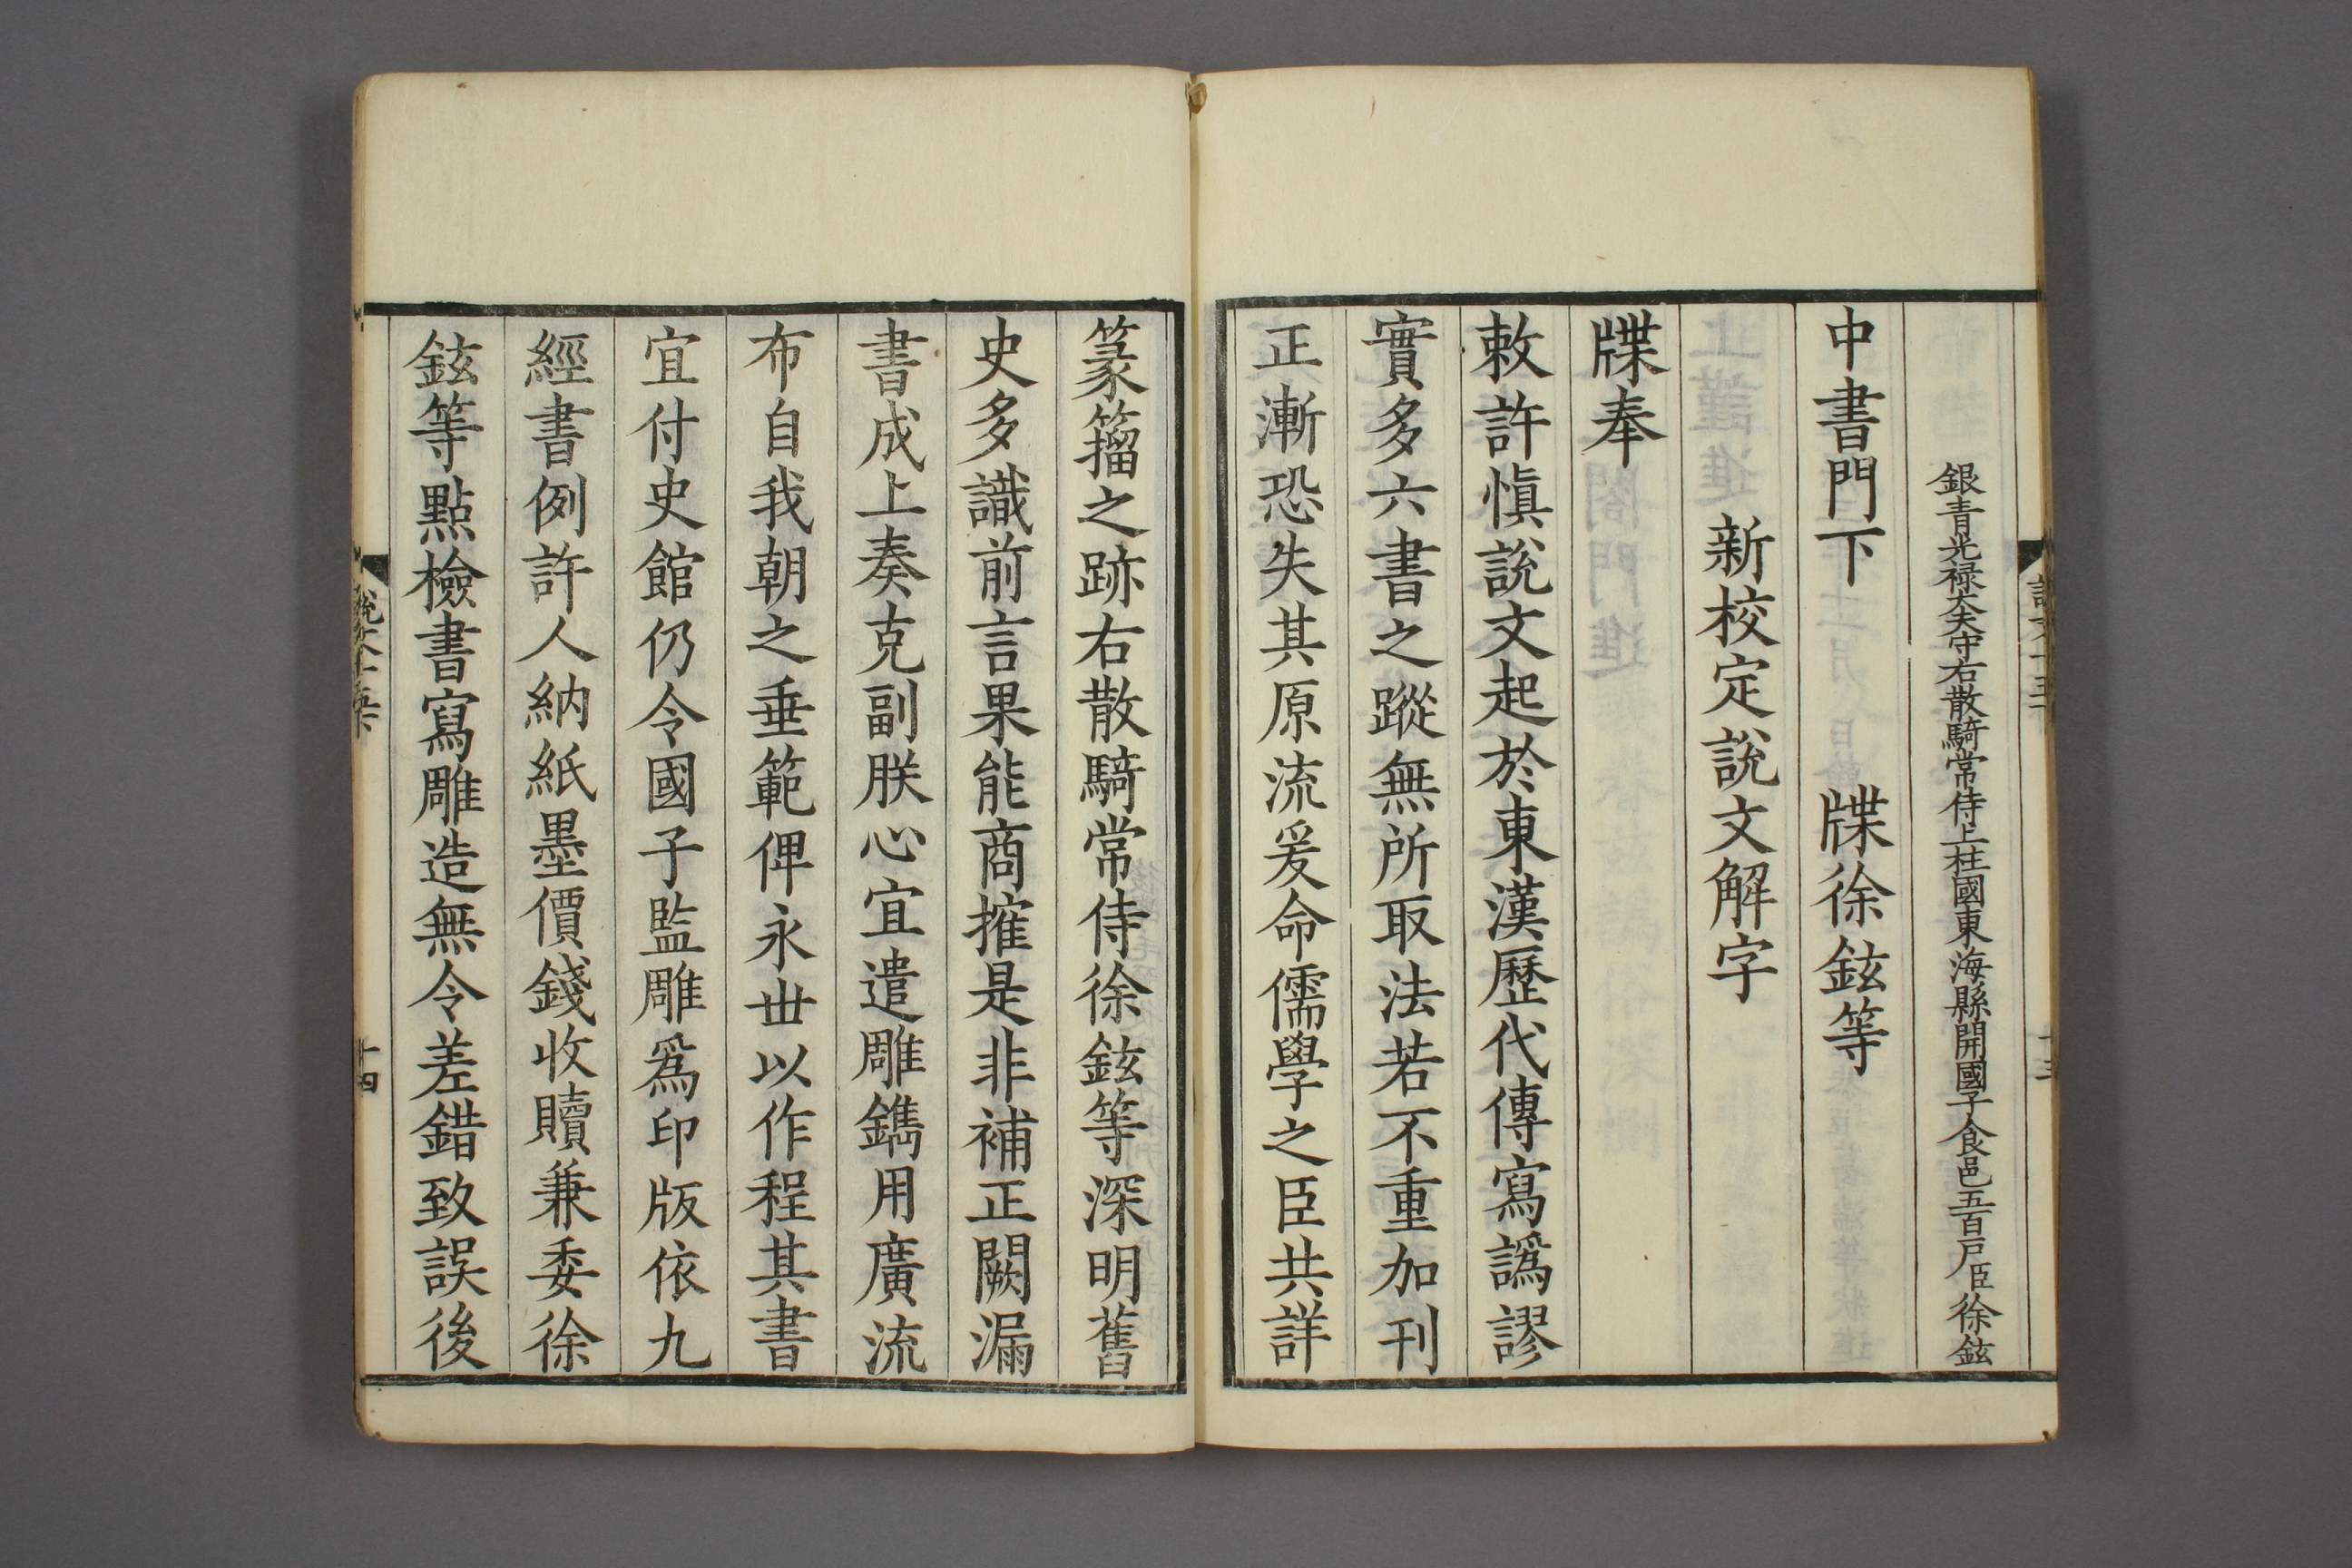 銀青光禄大夫守右散騎常侍上柱國東海縣開國子食邑五百戶臣徐鉉
中書門下　牒徐鉉等
新校定說文解字
牒奉
敕許愼說文起於東漢歷代傳寫譌謬
實多六書之蹤無所取法若不重加刊
正漸恐失其原流爰命儒學之臣共詳
篆籀之跡右散騎常侍徐鉉等深明舊
史多識前言果能商搉是非補正闕漏
書成上奏克副朕心宜遣雕鐫用廣流
布自我朝之垂範俾永世以作程其書
宜付史館仍令國子監雕爲印版依九
經書例許人納紙墨價錢收贖兼委徐
鉉等點檢書寫雕造無令差錯致誤後
十四